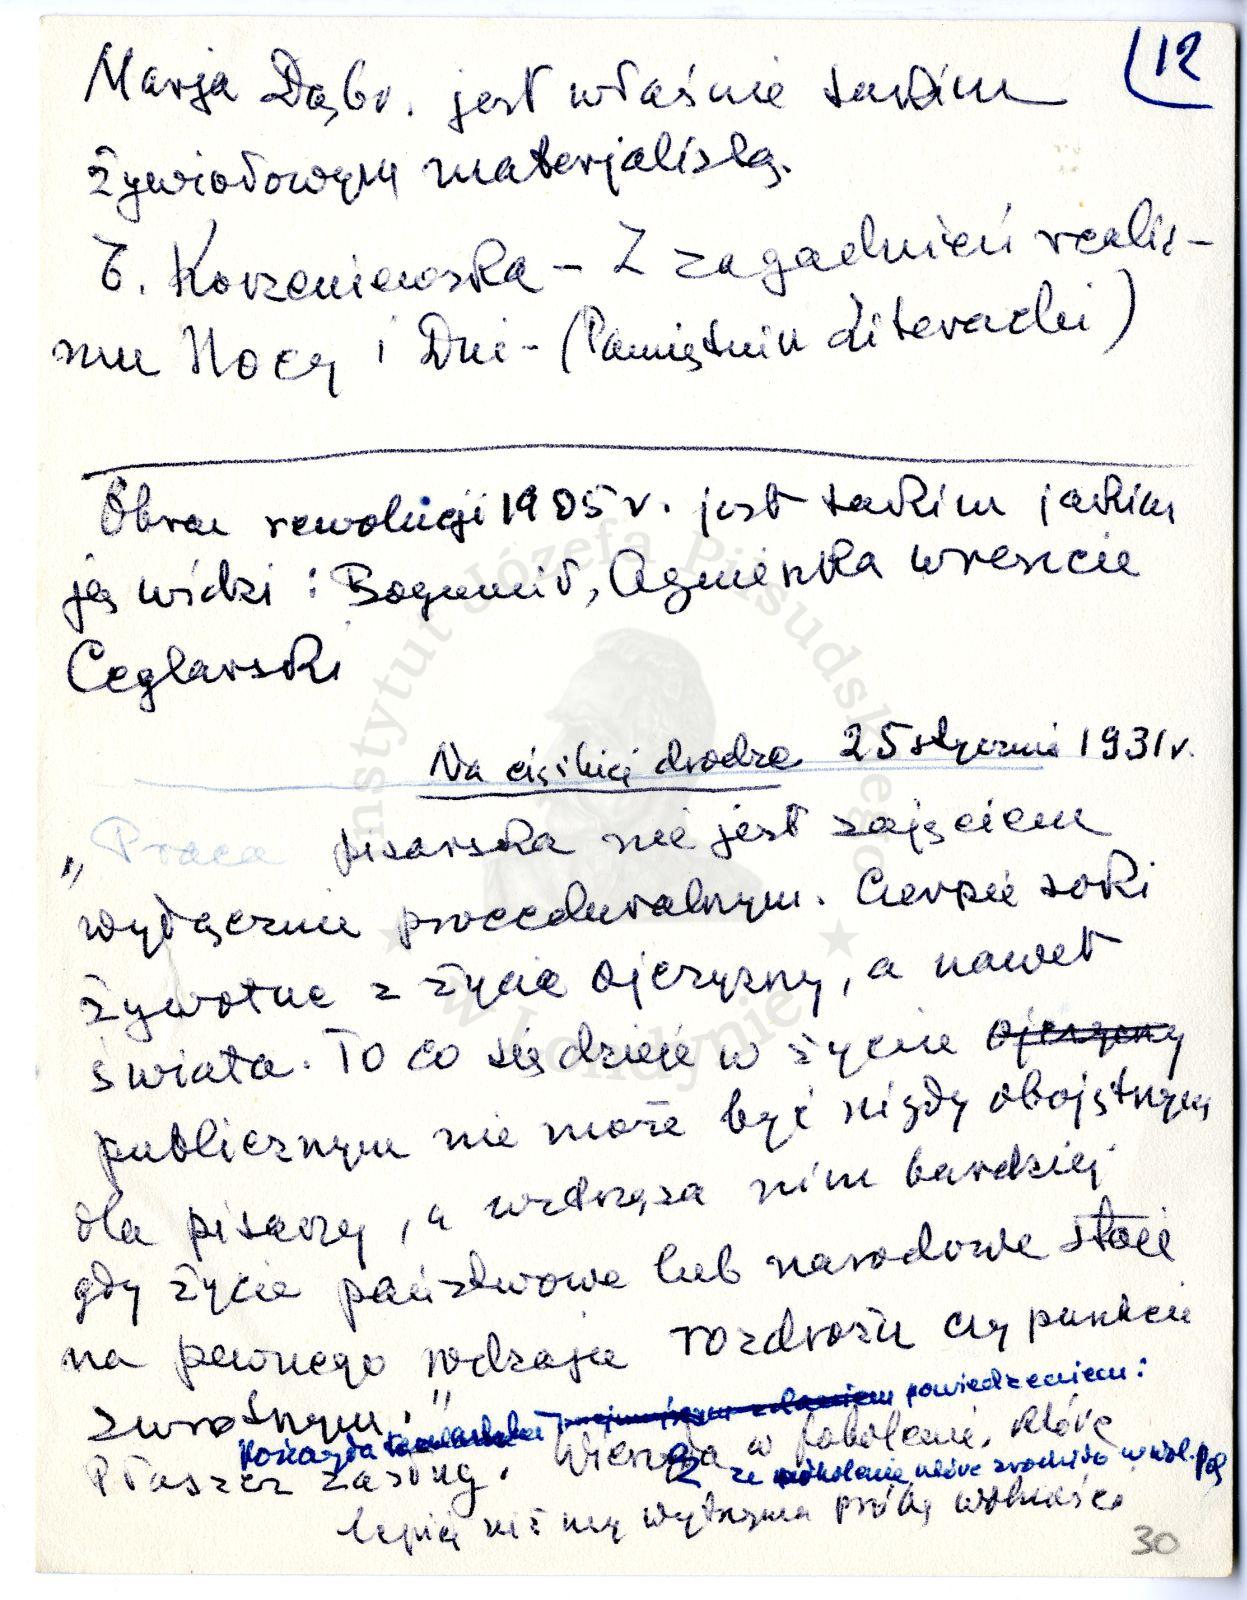 12
Marja Dąbr. jest właśnie takim
żywiołowym materjalistą.
E. Korzeniewska – Z zagadnień realiz-
mu Nocy i Dni – (Pamiętnik Literacki)
Obraz rewolucji 1905 r. jest takim jakim
ją widzi : Bogumił, Agnieszka wreszcie
Ceglarski
Na ciężkiej drodze 25 stycznia 1931 r.
„Praca pisarska nie jest zajęciem
wyłącznie proceduralnym. Czerpie soki
żywotne z życia ojczyzny, a nawet
świata. To co się dzieje w życiu ojczyzny
publicznym nie może być nigdy obojętnym
dla pisarzy, a wstrząsa nim bardziej
gdy życie państwowe lub narodowe stoi
na pewnego rodzaju rozdrożu czy punkcie
zwrotnym."
powiedzeniem:
Płaszcz zasług. Wierzyła w pokolenie, które
że pokolenie które zrodziło w wol. Pol
lepiej niż my wytrzyma próbę wolności
30
Instytut Józefa Piłsudskiego
w Londynie